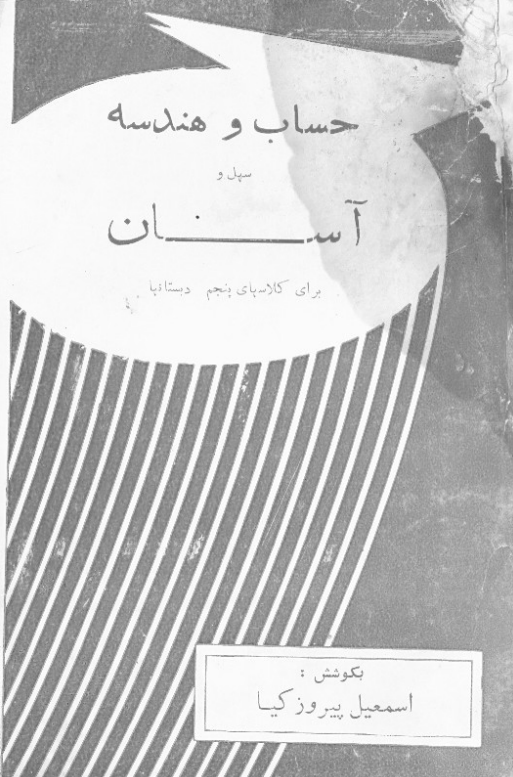 حساب و هندسه
سهل و
آسان
برای کلاسهای پنجم دبستانها
بکوشش :
اسمعیل پیروزکیا